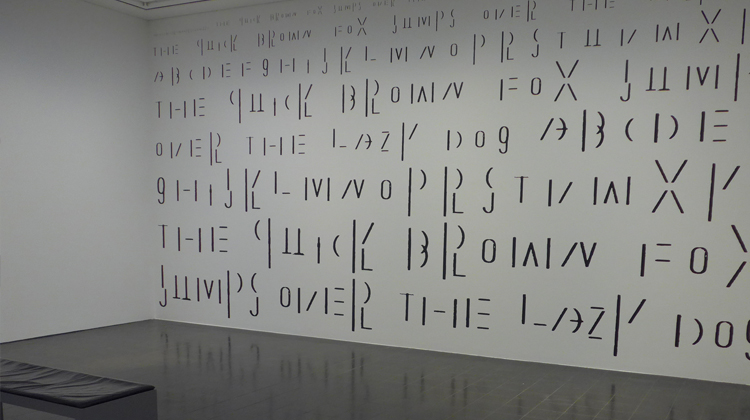 THE QUICK BROWN FOX JUMPS OVER THE
ABCDEFgHIJKLMNOPRSTUVWX
THE QUICK BROWN FOX JUM
OVER THE LAZY DOg ABCDE
gHIJKLMNOPRSTVWXY
THE QUICK BROWN FOX
JUMPS OVER THE LAZY DOg